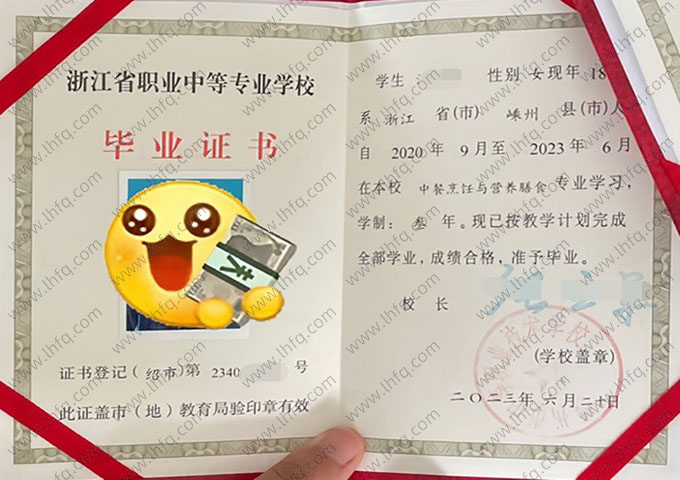 浙江省职业中等专业学校
毕业证书
证书登记（绍市）第 2340 号
此证盖市（地）教育局验印章有效
学生： 性别 女 现年 18
系 浙江 省(市) 嵊州 县(市)人
自 2020 年 9 月至 2023 年 6 月
在本校 中餐烹饪与营养膳食 专业学习，
学制： 叁 年。现已按教学计划完成
全部学业，成绩合格，准予毕业。
校 长
(学校盖章)
二〇二三年六月二十日
www.lhfq.com